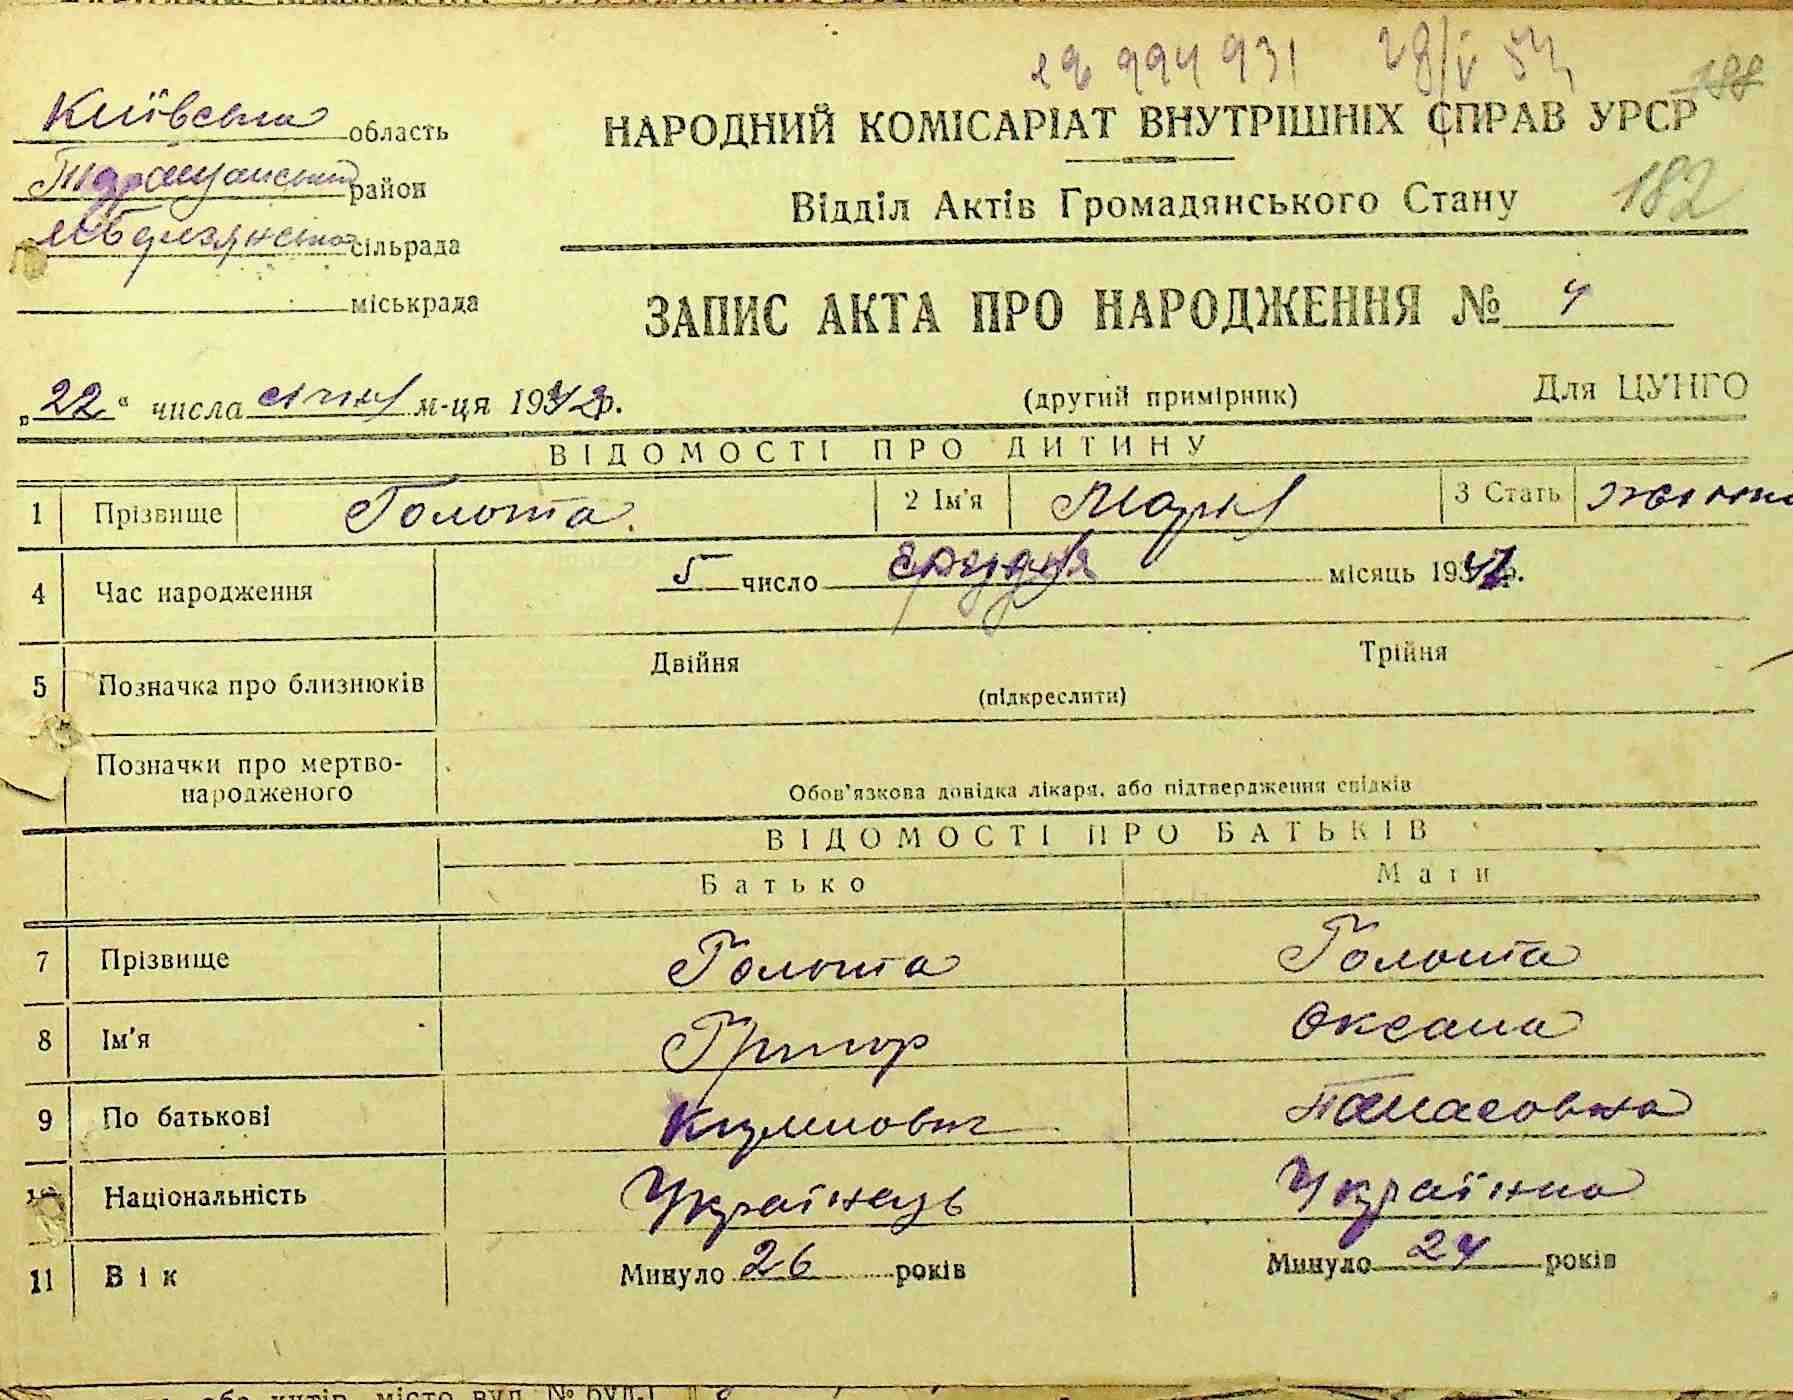 28/V 54
188
Київська область
НАРОДНИЙ КОМІСАРІАТ ВНУТРІШНІХ СПРАВ УРСР
район
Відділ Актів Громадянського Стану
182
сільрада
міськрада
ЗАПИС АКТА ПРО НАРОДЖЕННЯ № 4
„22“ числа січня м-ця 1942р.
(другий примірник)
Для ЦУНГО
ВІДОМОСТІ ПРО ДИТИНУ
1 Прізвище Голота. 2 Ім'я Марія 3 Стать
4 Час народження 5 число грудня місяць 1941р.
5 Позначка про близнюків Двійня Трійня
(підкреслити)
Позначки про мертво-
народженого
Обов'язкова довідка лікаря, або підтвердження свідків
ВІДОМОСТІ ПРО БАТЬКІВ
Батько Мати
7 Прізвище Голота Голота
8 Ім'я Григор Оксана
9 По батькові Панасовна
10 Національність Українець Українка
11 Вік Минуло 26 років Минуло 24 років